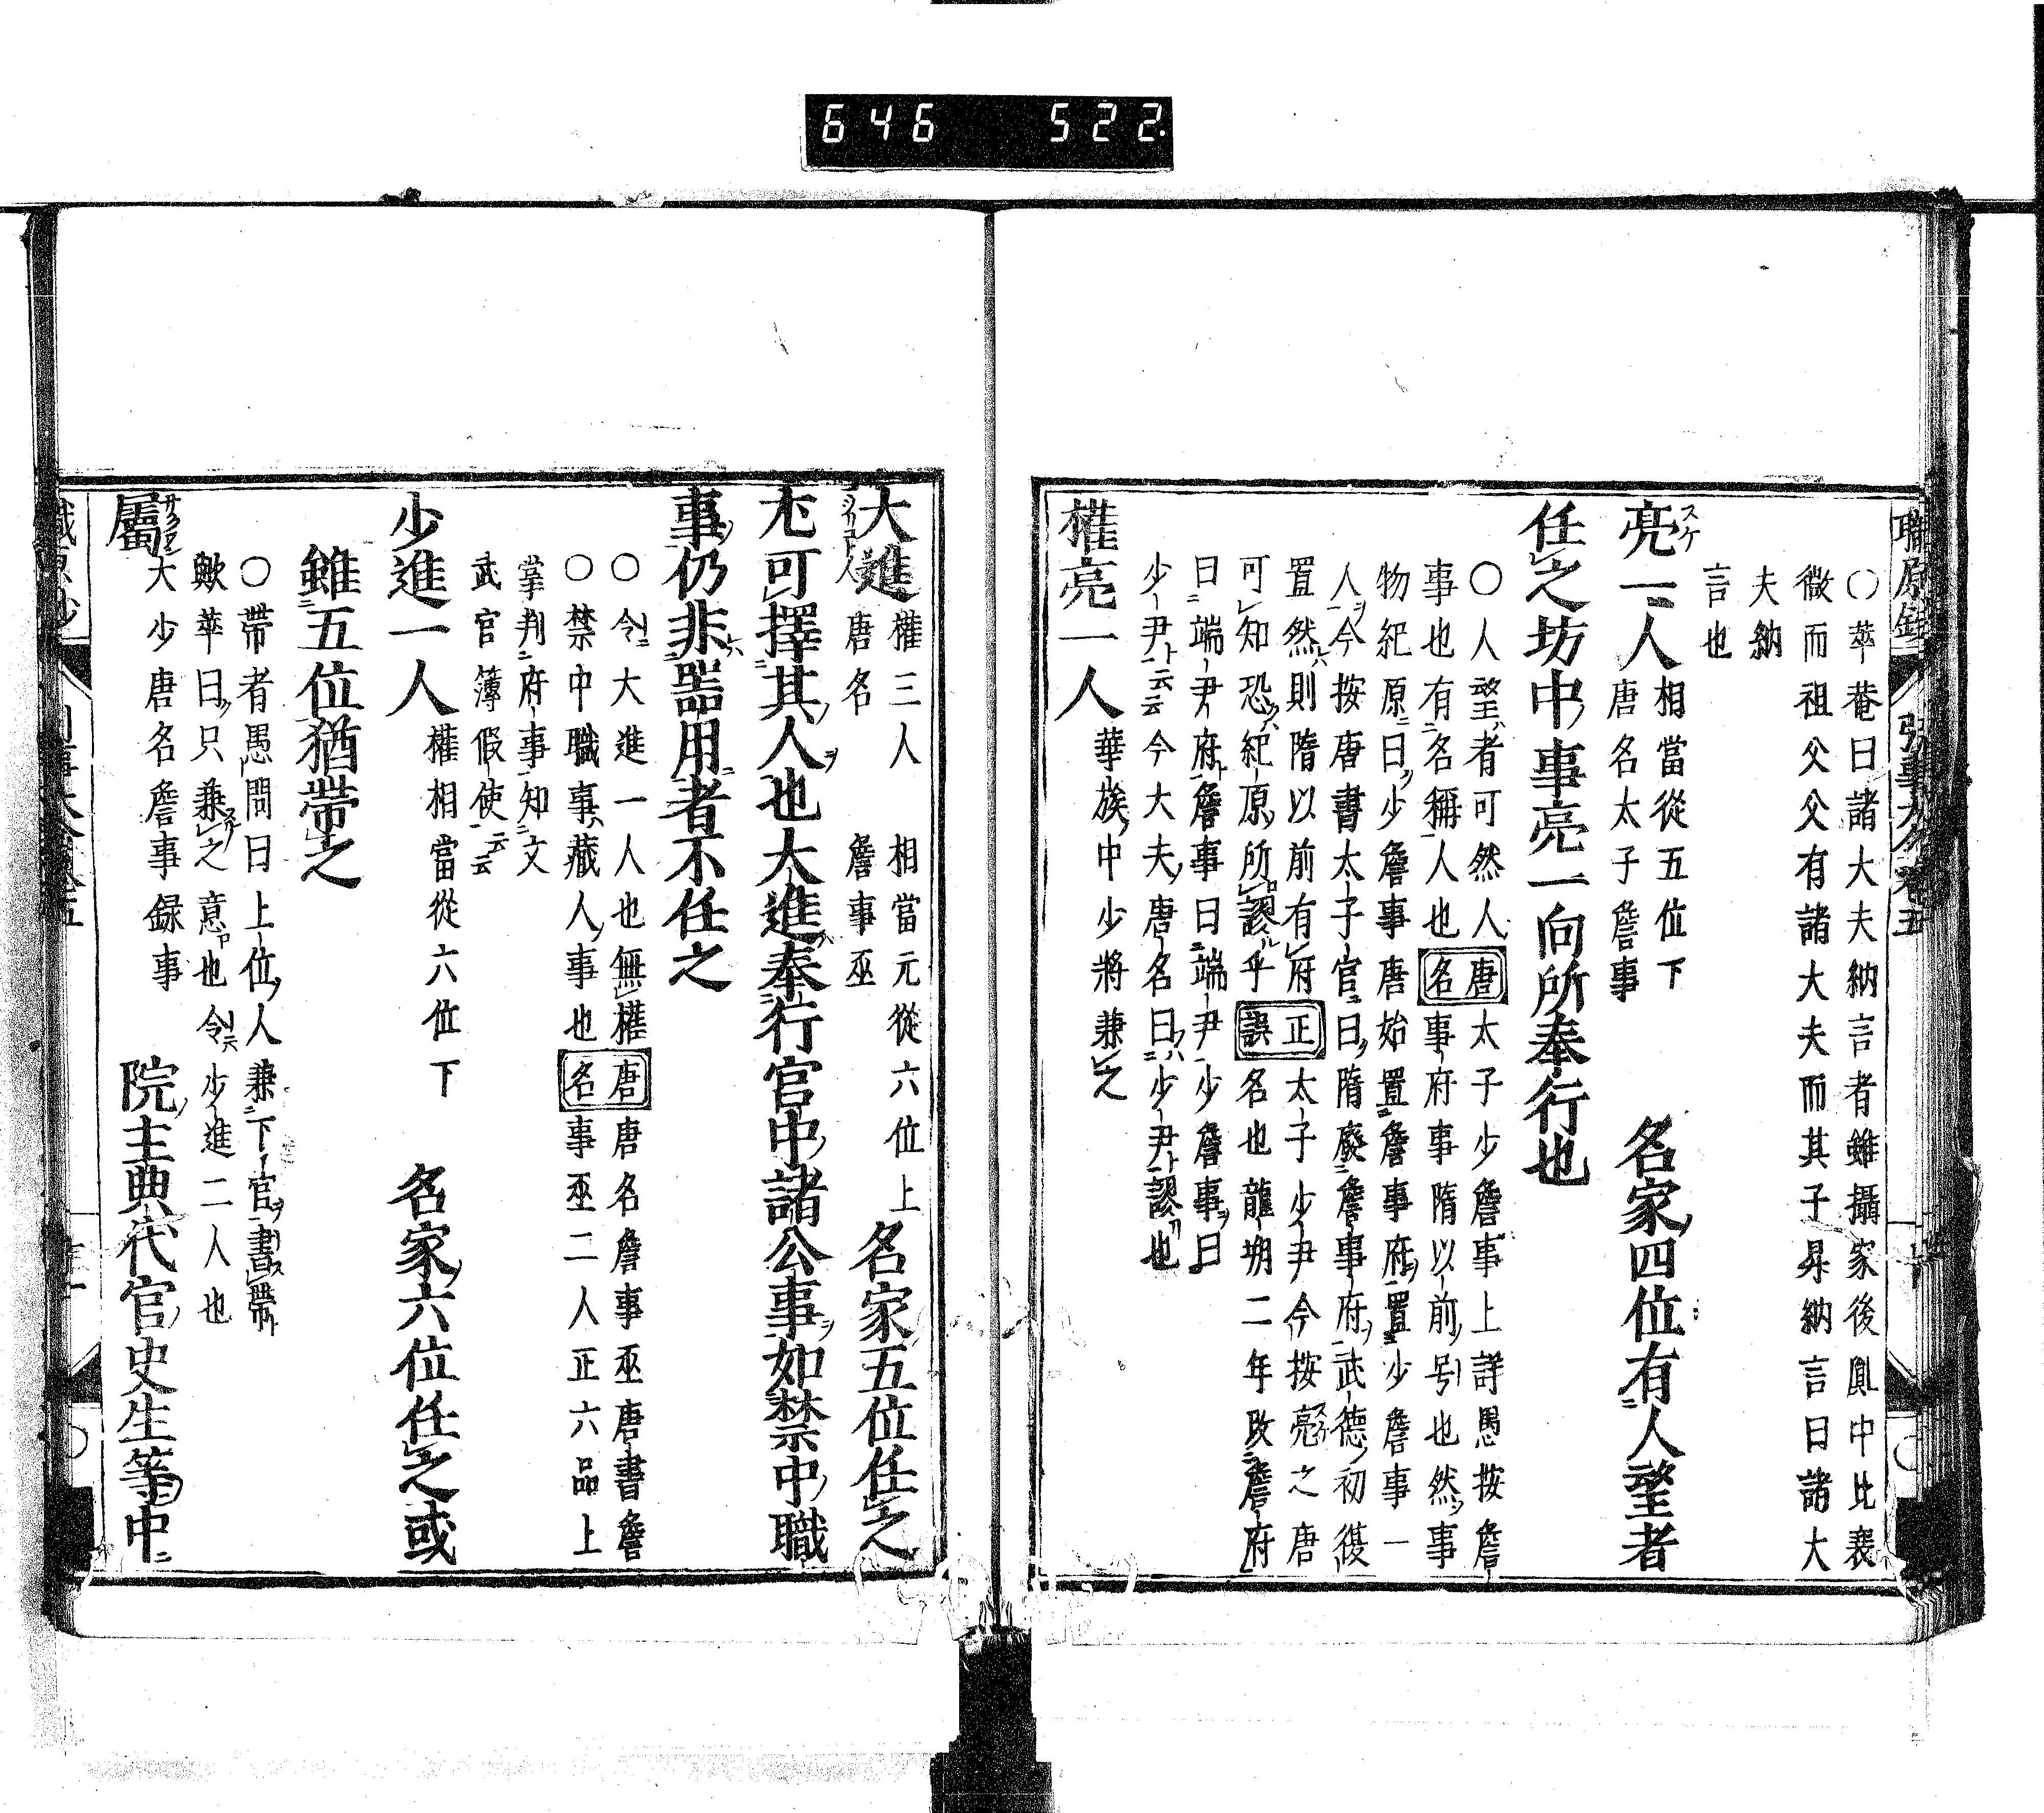 646 522
〇華菴曰諸大夫納言者雖攝家後胤中比衰
微而祖父父有諸大夫而其子昇納言曰諸大
夫納
言也
亮一人 相當從五位下 唐名太子詹事 名家四位有人望者
任之坊中事亮一向所奉行也
〇人望者可然人 唐名 太子少詹事上詳愚按詹
事也有名稱人也 事府事隋以前号也然事
物紀原曰少詹事唐始置詹事府置少詹事一
人今按唐書太子官曰隋廢詹事府武德初復
置然則隋以前有府 正誤 太子少尹今按亮之唐
可知恐紀原所謬乎 名也龍朔二年改詹府
曰端尹府詹事曰端尹少詹事曰
少尹云云今大夫唐名曰少尹謬也
權亮一人 華族中少將兼之
大進 權三人 相當元從六位上 唐名 詹事丞 名家五位任之
尤可擇其人也大進奉行官中諸公事如禁中職
事仍非器用者不任之
〇令大進一人也無權 唐名 唐名詹事丞唐書詹
〇禁中職事藏人事也 事丞二人正六品上
掌判府事知文
武官簿假使云云
少進一人 權相當從六位下 名家六位任之或
雖五位猶帶之
〇帶者愚問曰上位人兼下官書帶
歟華曰只兼之意也令少進二人也
屬 大少唐名詹事録事 院主典代官史生等中